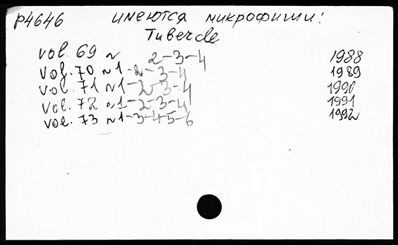 p4646 имеются микрофиши:
Tubercle
vol. 69 ~ 2-3-4 1988
vol. 70 ~1-2-3-4 1989
vol. 71 ~1-2-3-4 1990
vol. 72 ~1-2-3-4 1991
vol. 73 ~1-3-4-5-6 1992